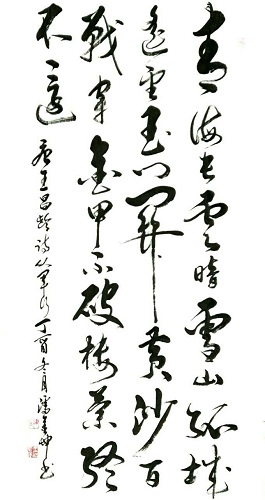 青海長雲暗雪山孤城
遙望玉門關黃沙百
戰穿金甲不破樓蘭終
不還
唐王昌齡詩從軍行丁酉冬月潘書